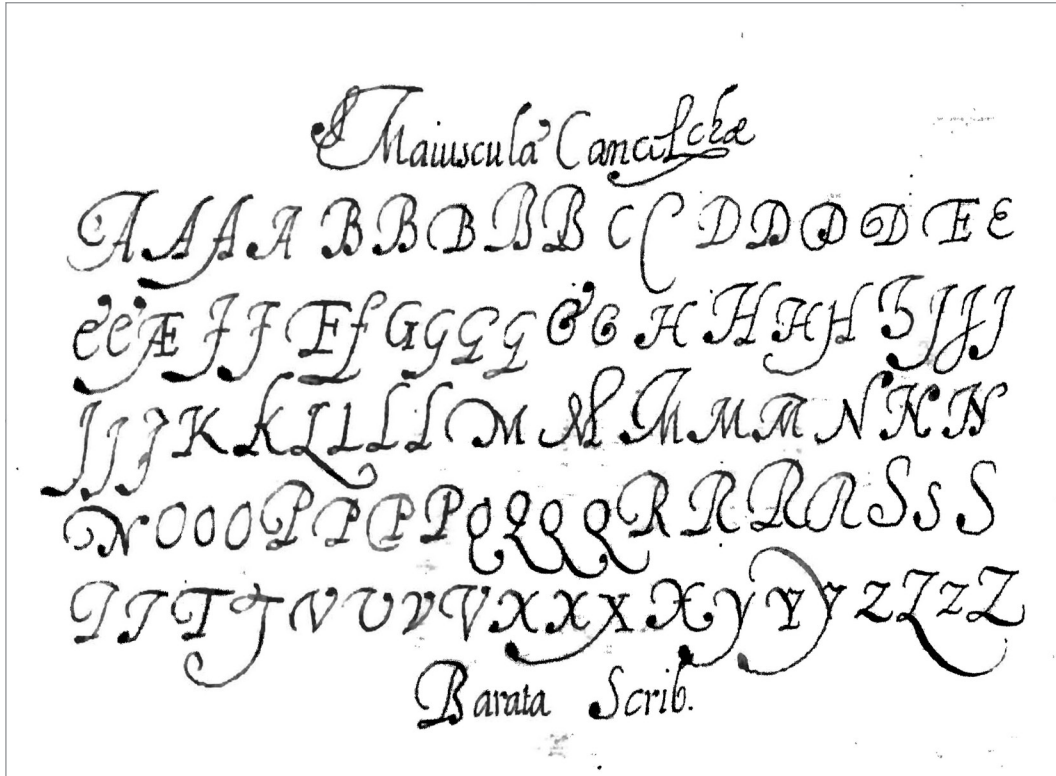 Maiuscula
A A A A B B B B B C C D D D D E E
E E Æ F F E F G G G G G G H H H H H J J J
J J J K K L L L L M M M M M N N N
N O O O P P P P Q Q Q Q R R R R S S S
T T T T V U V V X X X X Y Y Y Z Z Z Z
Barata Scrib.